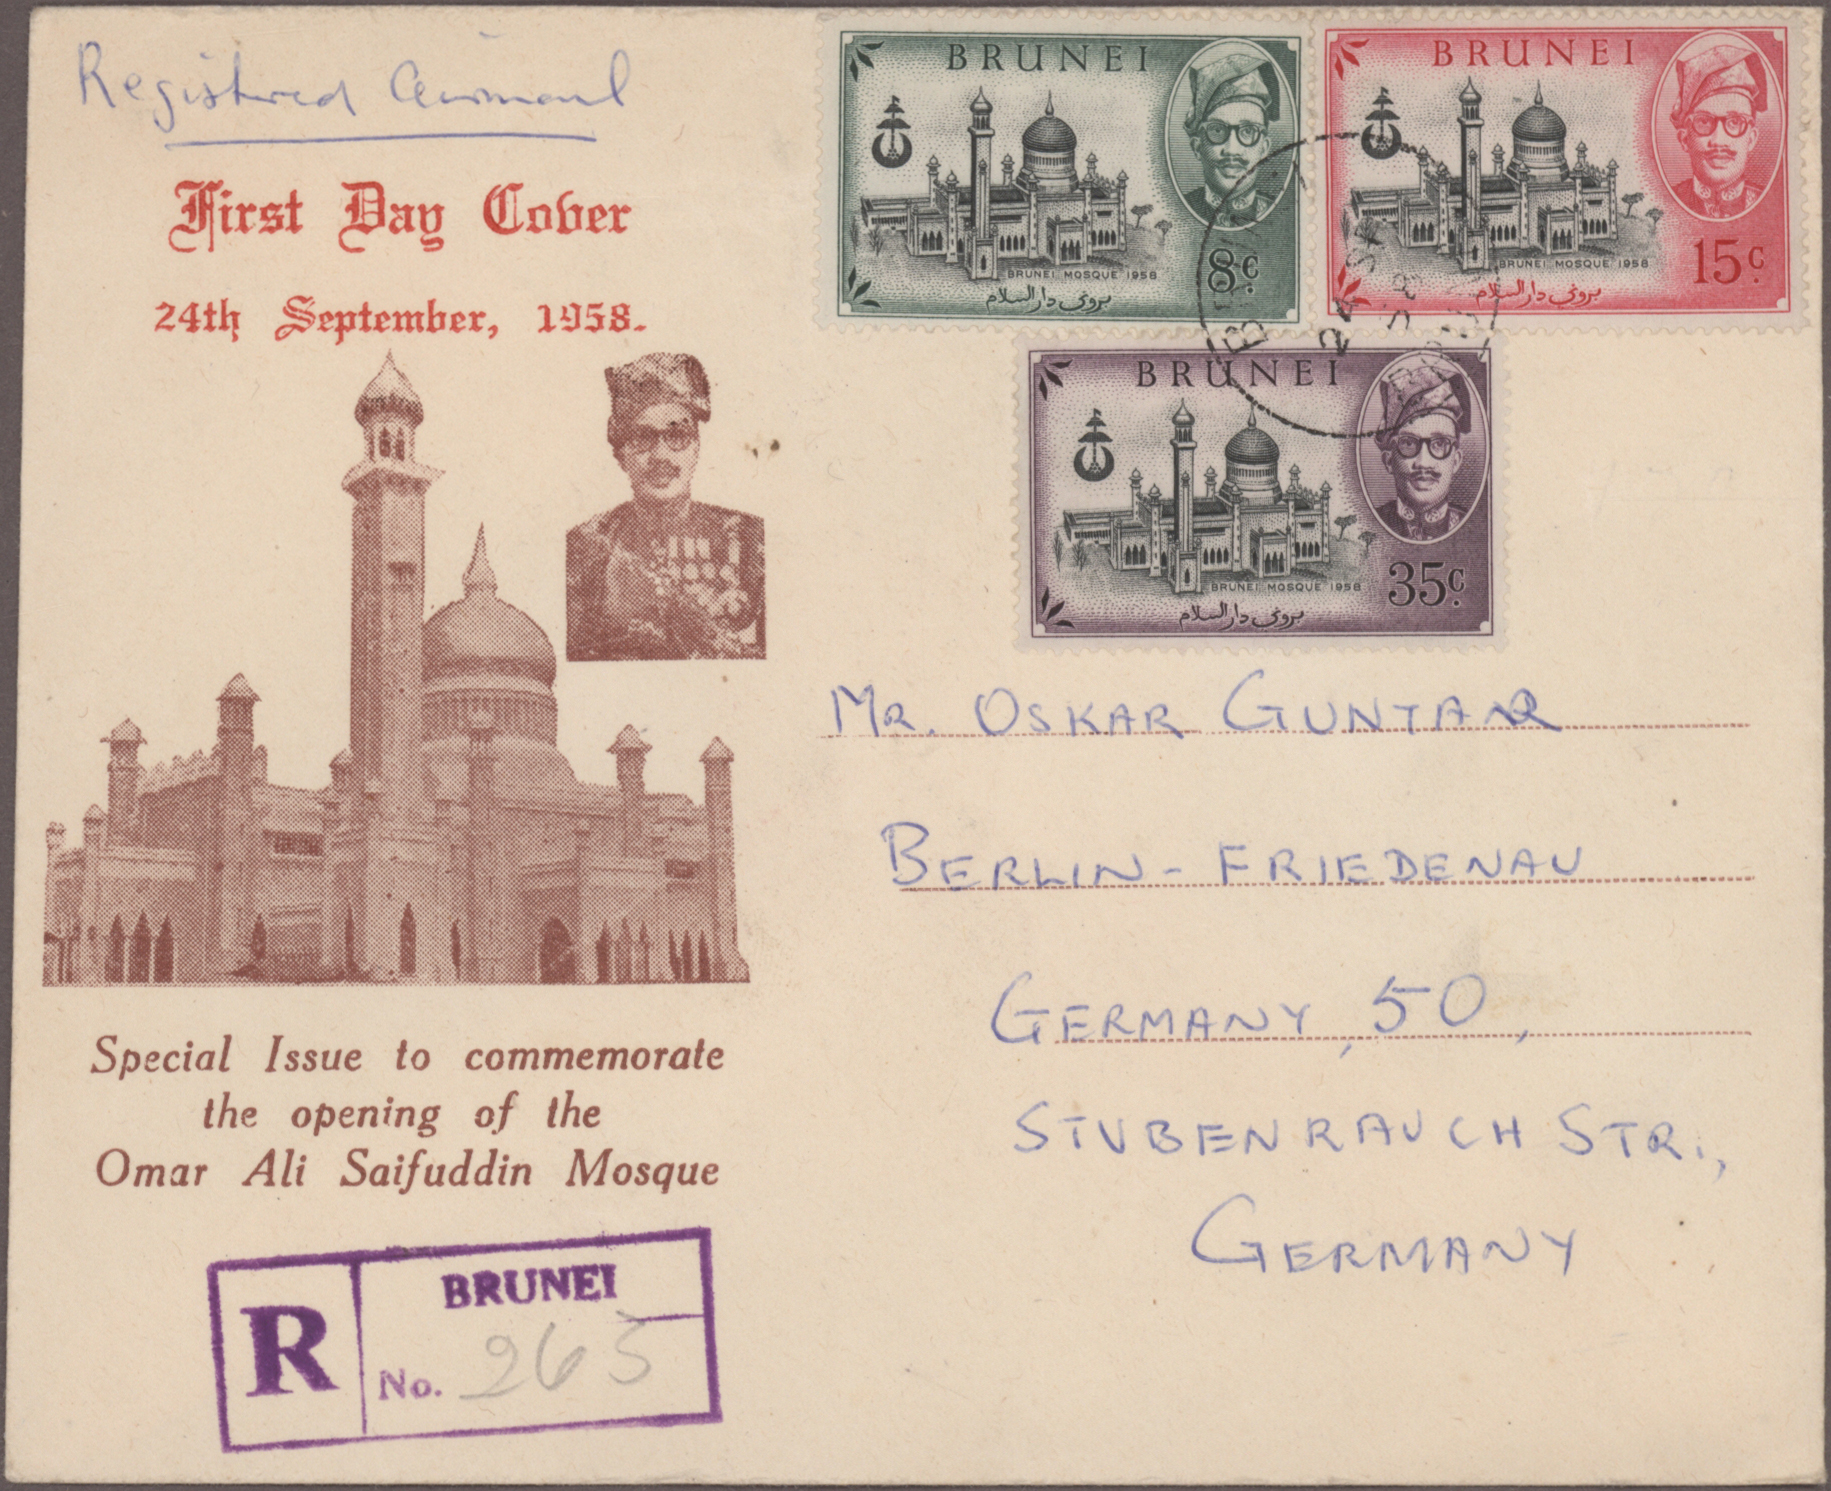 Registered Airmail
First Day Cover
24th September, 1958.
BRUNEI
BRUNEI MOSQUE 1958
8c.
بروني دارالسلام
BRUNEI
BRUNEI MOSQUE 1958
15c.
بروني دارالسلام
24 SP
58
BRUNEI
BRUNEI MOSQUE 1958
35c.
بروني دارالسلام
Special Issue to commemorate
the opening of the
Omar Ali Saifuddin Mosque
MR. OSKAR GUNTAR
BERLIN-FRIEDENAU
GERMANY, 50,
STUBENRAUCH STR.,
GERMANY
R
BRUNEI
No. 265